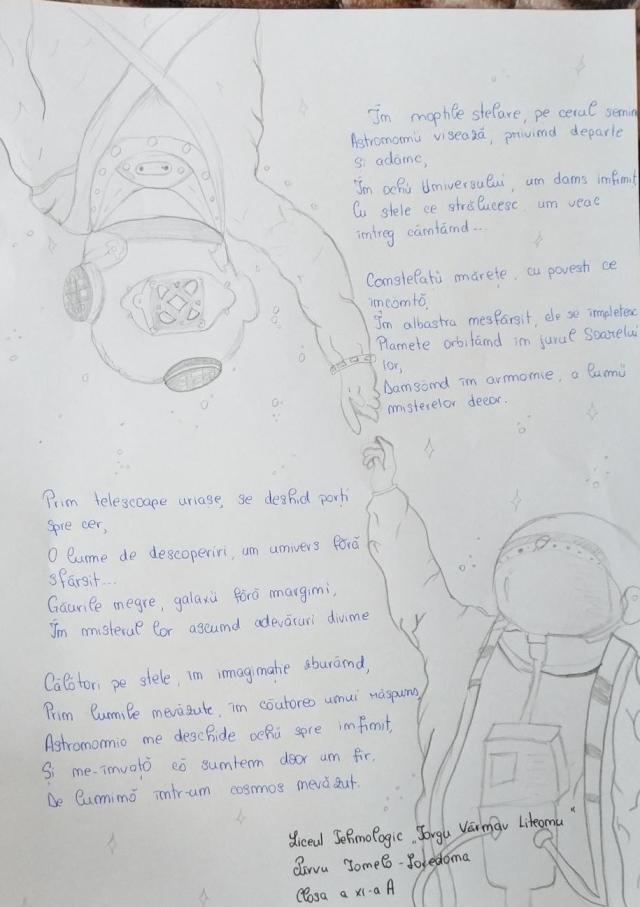 În nopțile stelare, pe cerul senin
Astronomii visează, privind departe
și adânc,
În ochii Universului, un dans infinit
Cu stele ce strălucesc un veac
întreg cântând...
Constelații mărețe, cu povești ce
încântă,
În albastra nesfârșit, ele se împletesc
Planete orbitând în jurul Soarelui
lor,
Dansând în armonie, a lumii
misterelor decor.
Prin telescoape uriașe, se deshid porți
spre cer,
O lume de descoperiri, un univers fără
sfârșit...
Găurile negre, galaxii fără margini,
În misterul lor ascund adevăruri divine
Călători pe stele, în imaginație zburând,
Prin lumile nevăzute, în căutarea unui răspuns,
Astronomia ne deschide ochii spre infinit,
Și ne-învață că suntem doar un fir,
De lumină într-un cosmos nevăzut.
Liceul Tehnologic „Iorgu Vârnav Liteanu"
Pîrvu Ionela - Loredana
Clasa a XI-a A